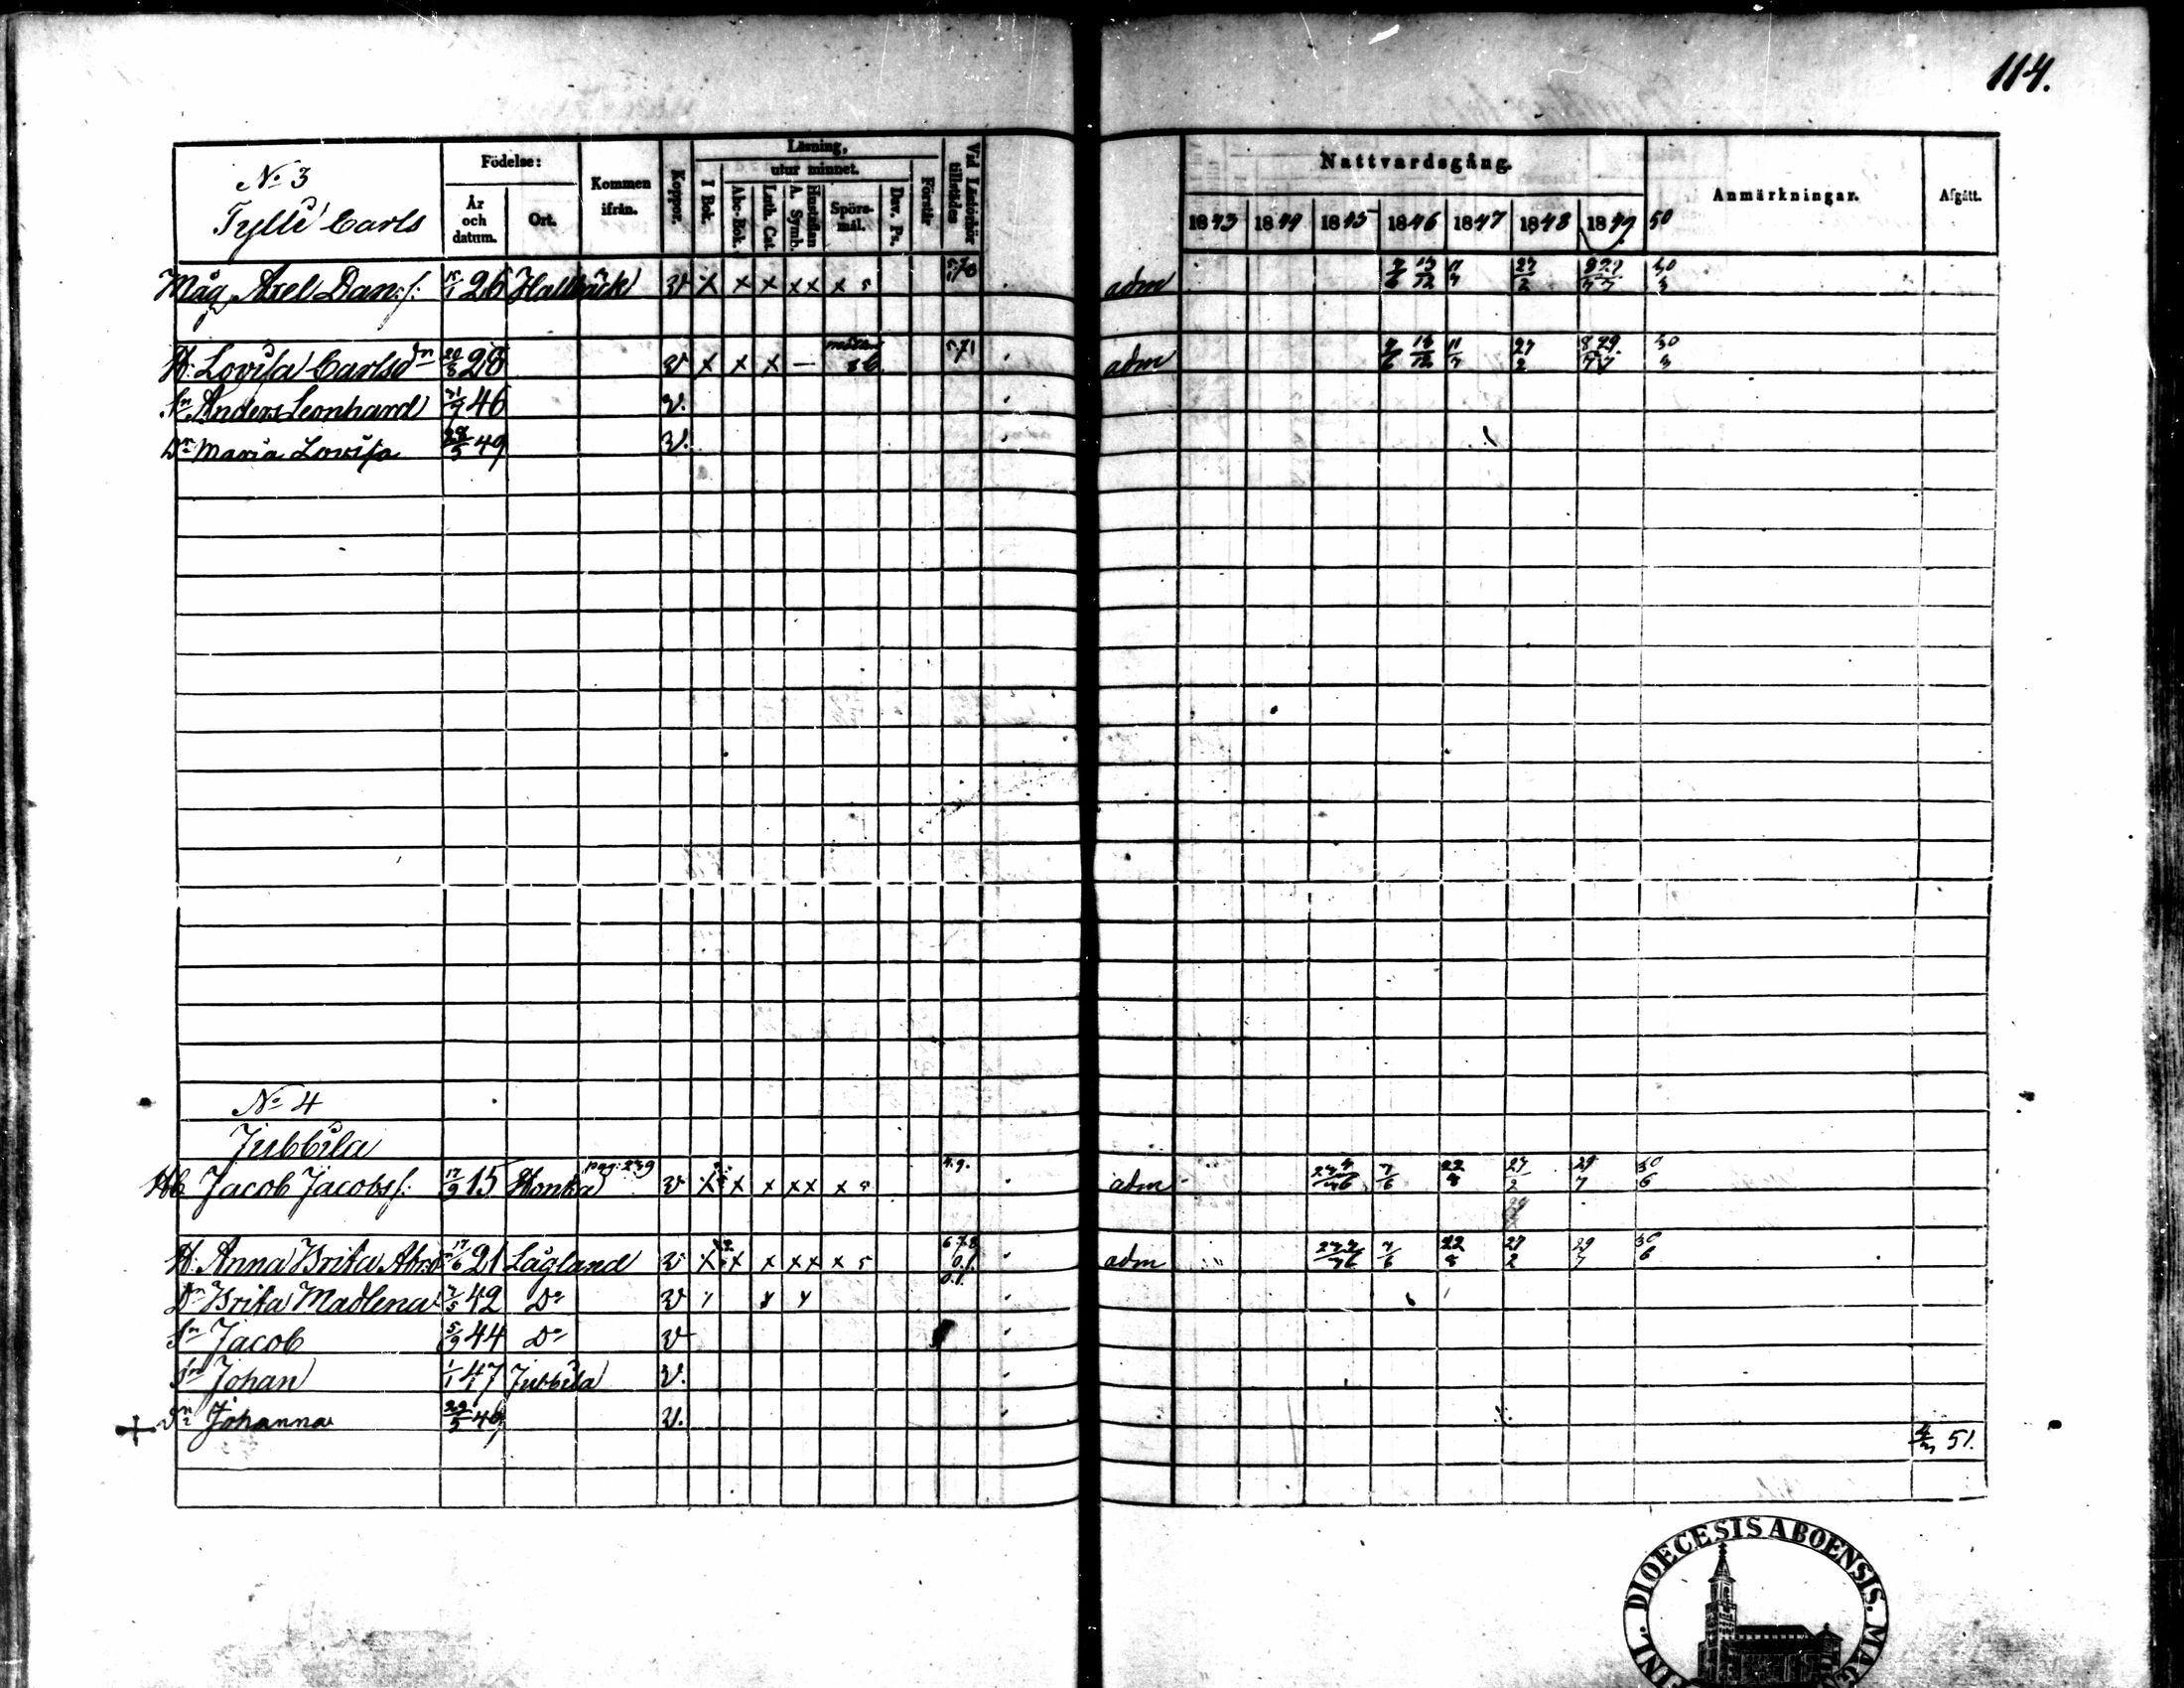 114.
No 3
Tylli Carls
Födelse:
År och datum.
Ort.
Kommen ifrån.
Koppor.
Läsning,
I Bok.
utur minnet.
Abc-Bok.
Luth. Cat.
Hustaflan A. Symb.
Spörsmål.
Dav. Ps.
Förstår
Vid Läsförhör tillstädes
Nattvardsgång.
1843 1844 1845 1846 1847 1848 1849 50
Anmärkningar.
Afgått.
Måg Axel Dan:s: 15/1 26 Hallbäck v x x x x x x adm 11/7 27/2 30/3
H: Lovisa Carlsdn 20/8 28 v x x x — adm 11/7 27/2 30/3
Sn Anders Leonhard 46 v.
Dr Maria Lovisa 28/5 49 v.
No 4
Jubbila
Hb Jacob Jacobs: 17/9 15 Honka pag: 239 v x x x x x x 4.9. adm 7/6 22/8 27/2 29/7 30/6
H: Anna Brita 17/6 21 Lågland v x x x x x x 5 678 0.1. adm 7/6 22/8 27/2 29/7 30/6
Dr Brita Madlena 7/5 42 Do v 0.1.
Sn Jacob 5/9 44 Do v
Sn Johan 1/1 47 Jubbila v.
+ Dr Johanna 29/5 49 v. 51.
FINL. DIOECESIS ABOENSIS.